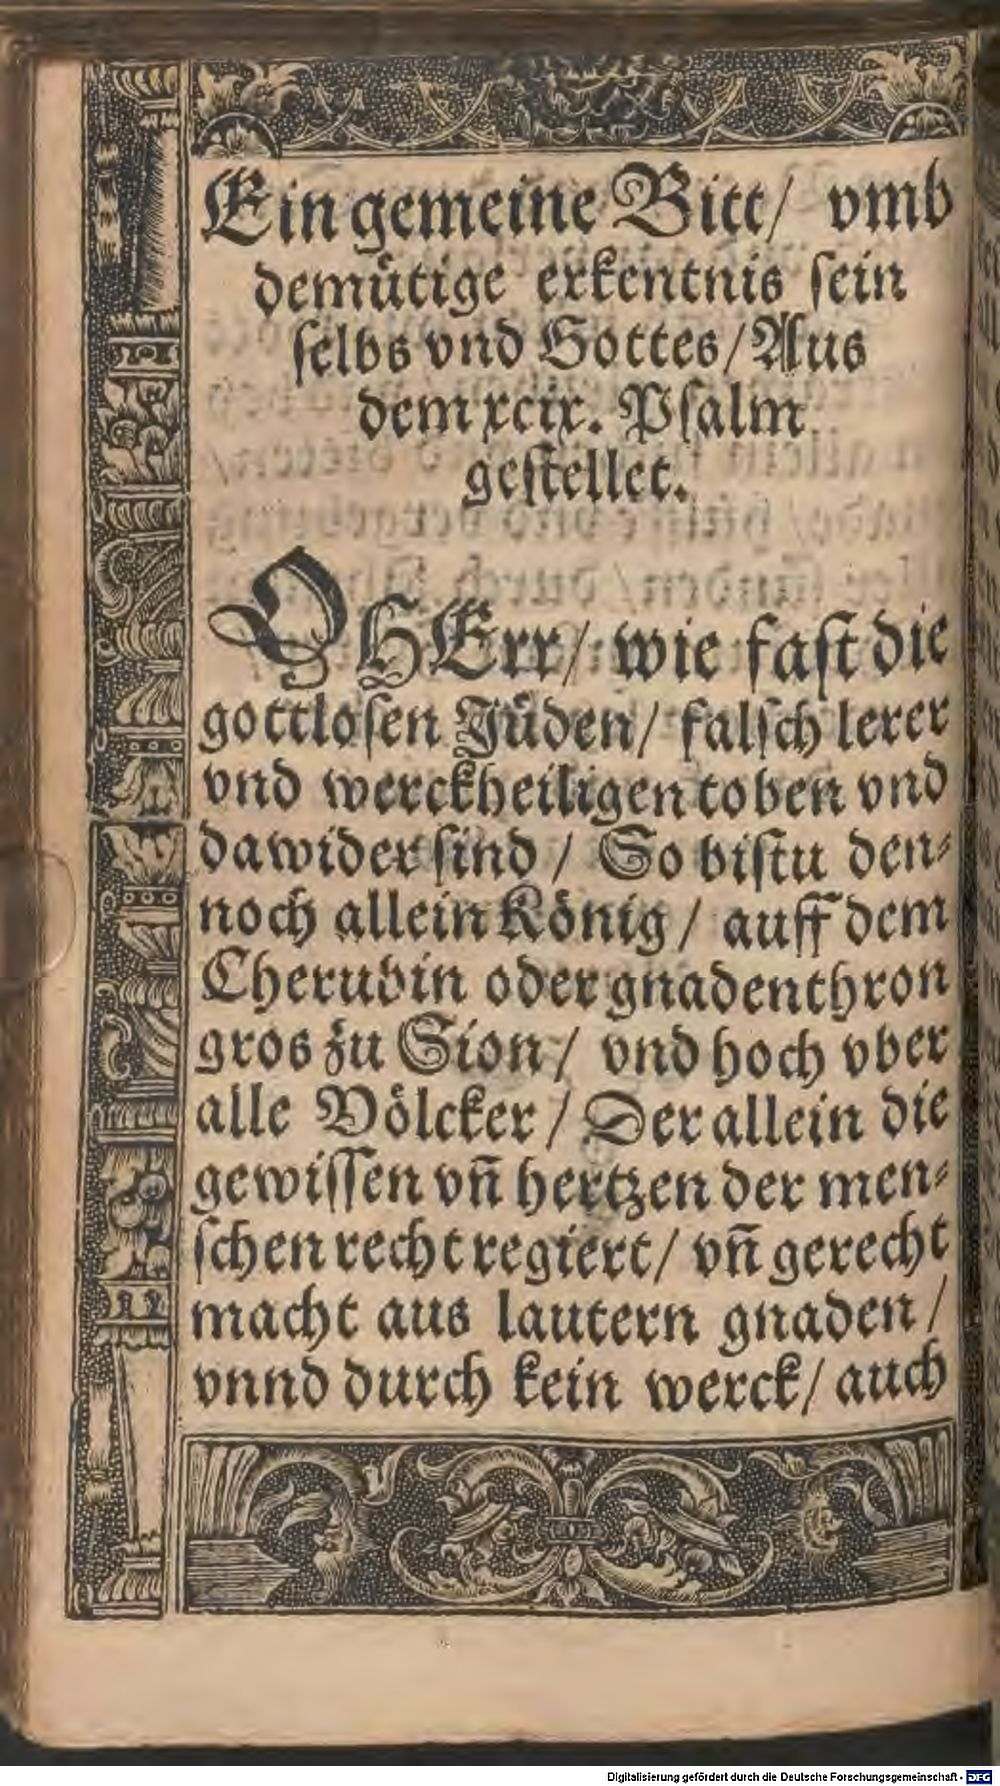 Ein gemeine Bitt/ vmb
demuͤtige erkentnis sein
selbs vnd Gottes/ Aus
dem xcix. Psalm
gestellet.
O HErr/ wie fast die
gottlosen Juͤden/ falsch lerer
vnd werckheiligen toben vnd
dawider sind / So bistu den⸗
noch allein Koͤnig / auff dem
Cherubin oder gnadenthron
gros zu Sion / vnd hoch vber
alle Voͤlcker / Der allein die
gewissen vn̄ hertzen der men⸗
schen recht regiert/ vn̄ gerecht
macht aus lautern gnaden /
vnnd durch kein werck/ auch
Digitalisierung gefördert durch die Deutsche Forschungsgemeinschaft - DFG